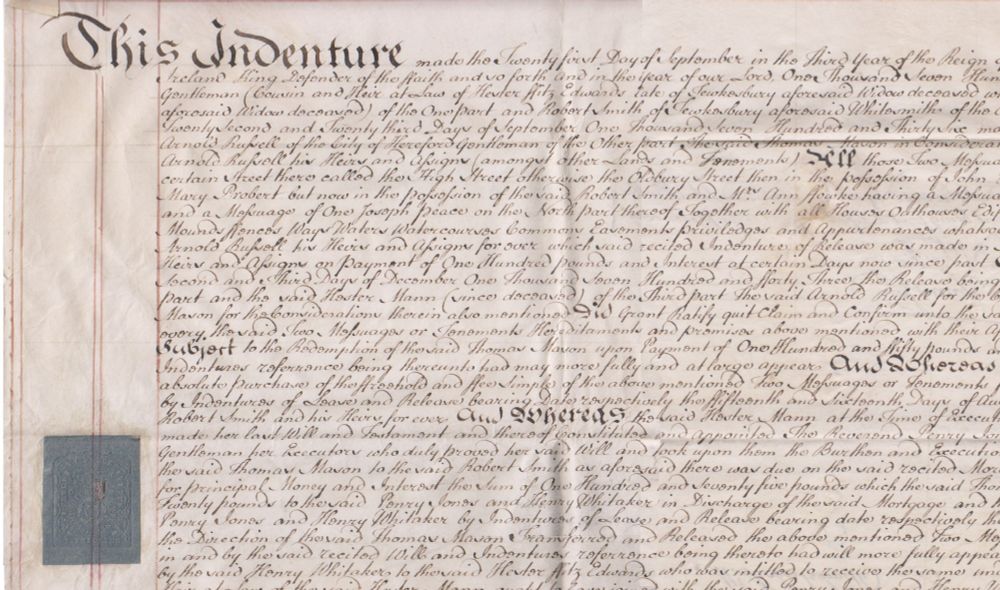 This Indenture made the Twenty first Day of September in the Third Year of the Reign
Ireland King Defender of the ffaith and so forth and in the year of our Lord One Thousand Seven Hun
Gentleman (Cousin and Heir at Law of Hester Fitz Edwards late of Tewkesbury aforesaid Widow deceased
aforesaid Widow deceased) of the One part and Robert Smith of Tewkesbury aforesaid Whitesmith of the
Twenty Second and Twenty third Days of September One Thousand Seven Hundred and Thirty Six
Arnold Russell of the City of Hereford Gentleman of the Other part The said Thomas Mason in Considerat
Arnold Russell his Heirs and Assigns (amongst other Lands and Tenements) All those Two Messua
certain Street there called the High Street otherwise the Oldbury Street then in the possession of John
Mary Probert but now in the possession of the said Robert Smith and Mrs Ann Hawke having a Messua
and a Messuage of One Joseph Peace on the North part thereof Together with all Houses Outhouses Edi
Mounds ffences Ways Waters Watercourses Commons Easements priviledges and Appurtenances whatso
Arnold Russell his Heirs and Assigns for ever which said recited Indenture of Release was made in
Heirs and Assigns on Payment of One Hundred pounds and Interest at certain Days now since past
Second and Third Days of December One Thousand Seven Hundred and fforty Three the Release being
part and the said Hester Mann (since deceased) of the Third part The said Arnold Russell for the
Mason for the Considerations therein also mentioned Did Grant Ratify quit Claim and Confirm unto the
every the said Two Messuages or Tenements Hereditaments and premises above mentioned with their
Subject to the Redemption of the said Thomas Mason upon Payment of One Hundred and ffifty pounds
Indentures referrence being thereunto had may more fully and at large appear And Whereas
absolute purchase of the ffreehold and ffee Simple of the above mentioned Two Messuages or Tenements
by Indentures of Lease and Release bearing Date respectively the ffifteenth and Sixteenth Days of
Robert Smith and his Heirs for ever And Whereas the said Hester Mann at the Time of
made her last Will and Testament and thereof Constituted and appointed The Reverend Henry
Gentleman her Executors who duly proved her said Will and took upon them the Burthen and Executio
the said Thomas Mason to the said Robert Smith as aforesaid there was due on the said recited
for principal Money and Interest the Sum of One Hundred and Seventy five pounds which the said
Twenty pounds to the said Penry Jones and Henry Whitaker in Discharge of the said Mortgage and
Penry Jones and Henry Whitaker by Indentures of Lease and Release bearing date respectively
the Direction of the said Thomas Mason Transferred and Released the above mentioned Two
in and by the said recited Will and Indentures referrence being thereto had will more fully appea
by the said Henry Whitaker to the said Hester Fitz Edwards who was intitled to receive the same